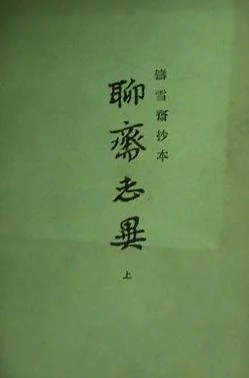 鑄雪齋抄本
聊齋志異
上